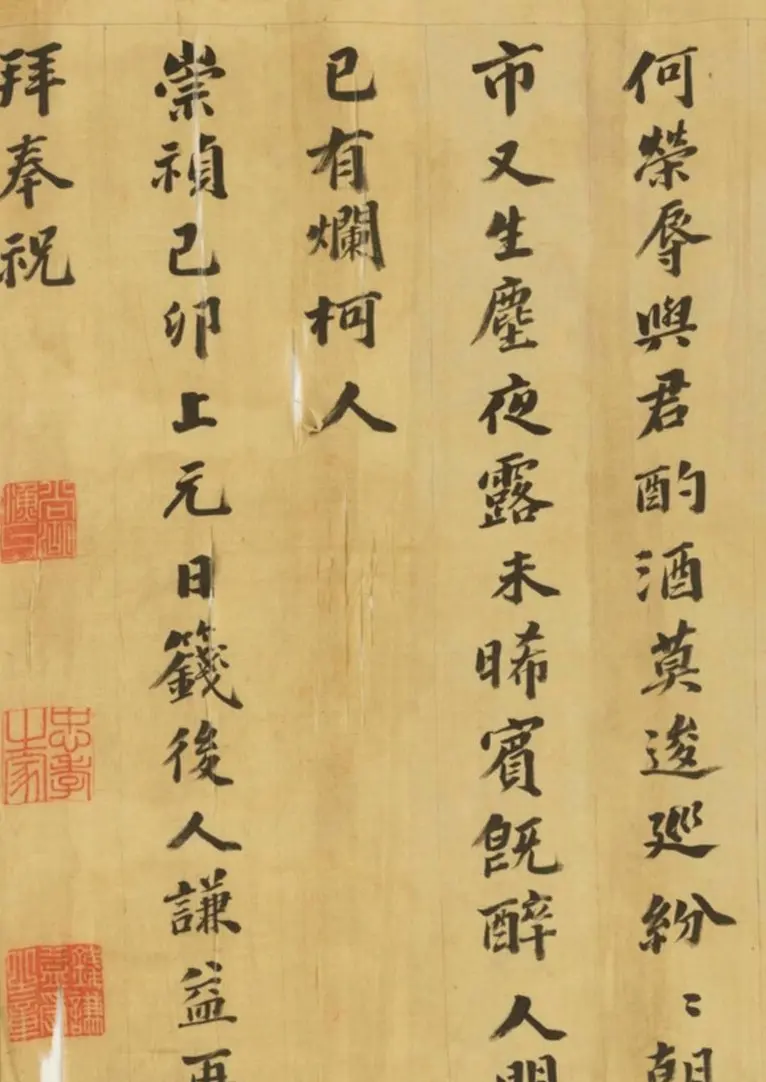 何榮辱與君酌酒莫逡廵紛〻朝
市又生塵夜露未晞賓既醉人
已有爛柯人
崇禎己卯上元日籛後人謙益再
拜奉祝
忠孝之家